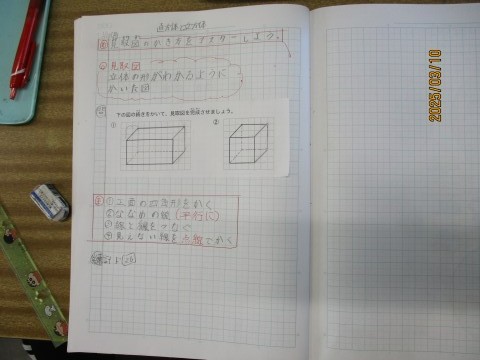 直方体と立方体
見取図のかき方をマスターしよう。
見取図
立体の形がわかるように
かいた図
下の図の続きをかいて、見取図を完成させましょう。
① ②
①正面の四角形をかく
②ななめの線(平行に)
③線と線をつなぐ
④見えない線を点線でかく
2025/03/10